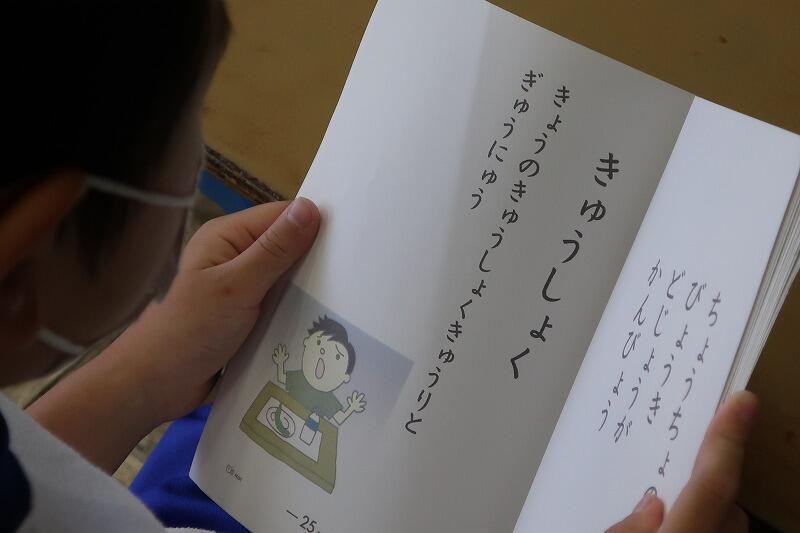 ちょうちょの
びょうき
どじょうが
かんびょう
きゅうしょく
きょうのきゅうしょくきゅうりと
ぎゅうにゅう
—25